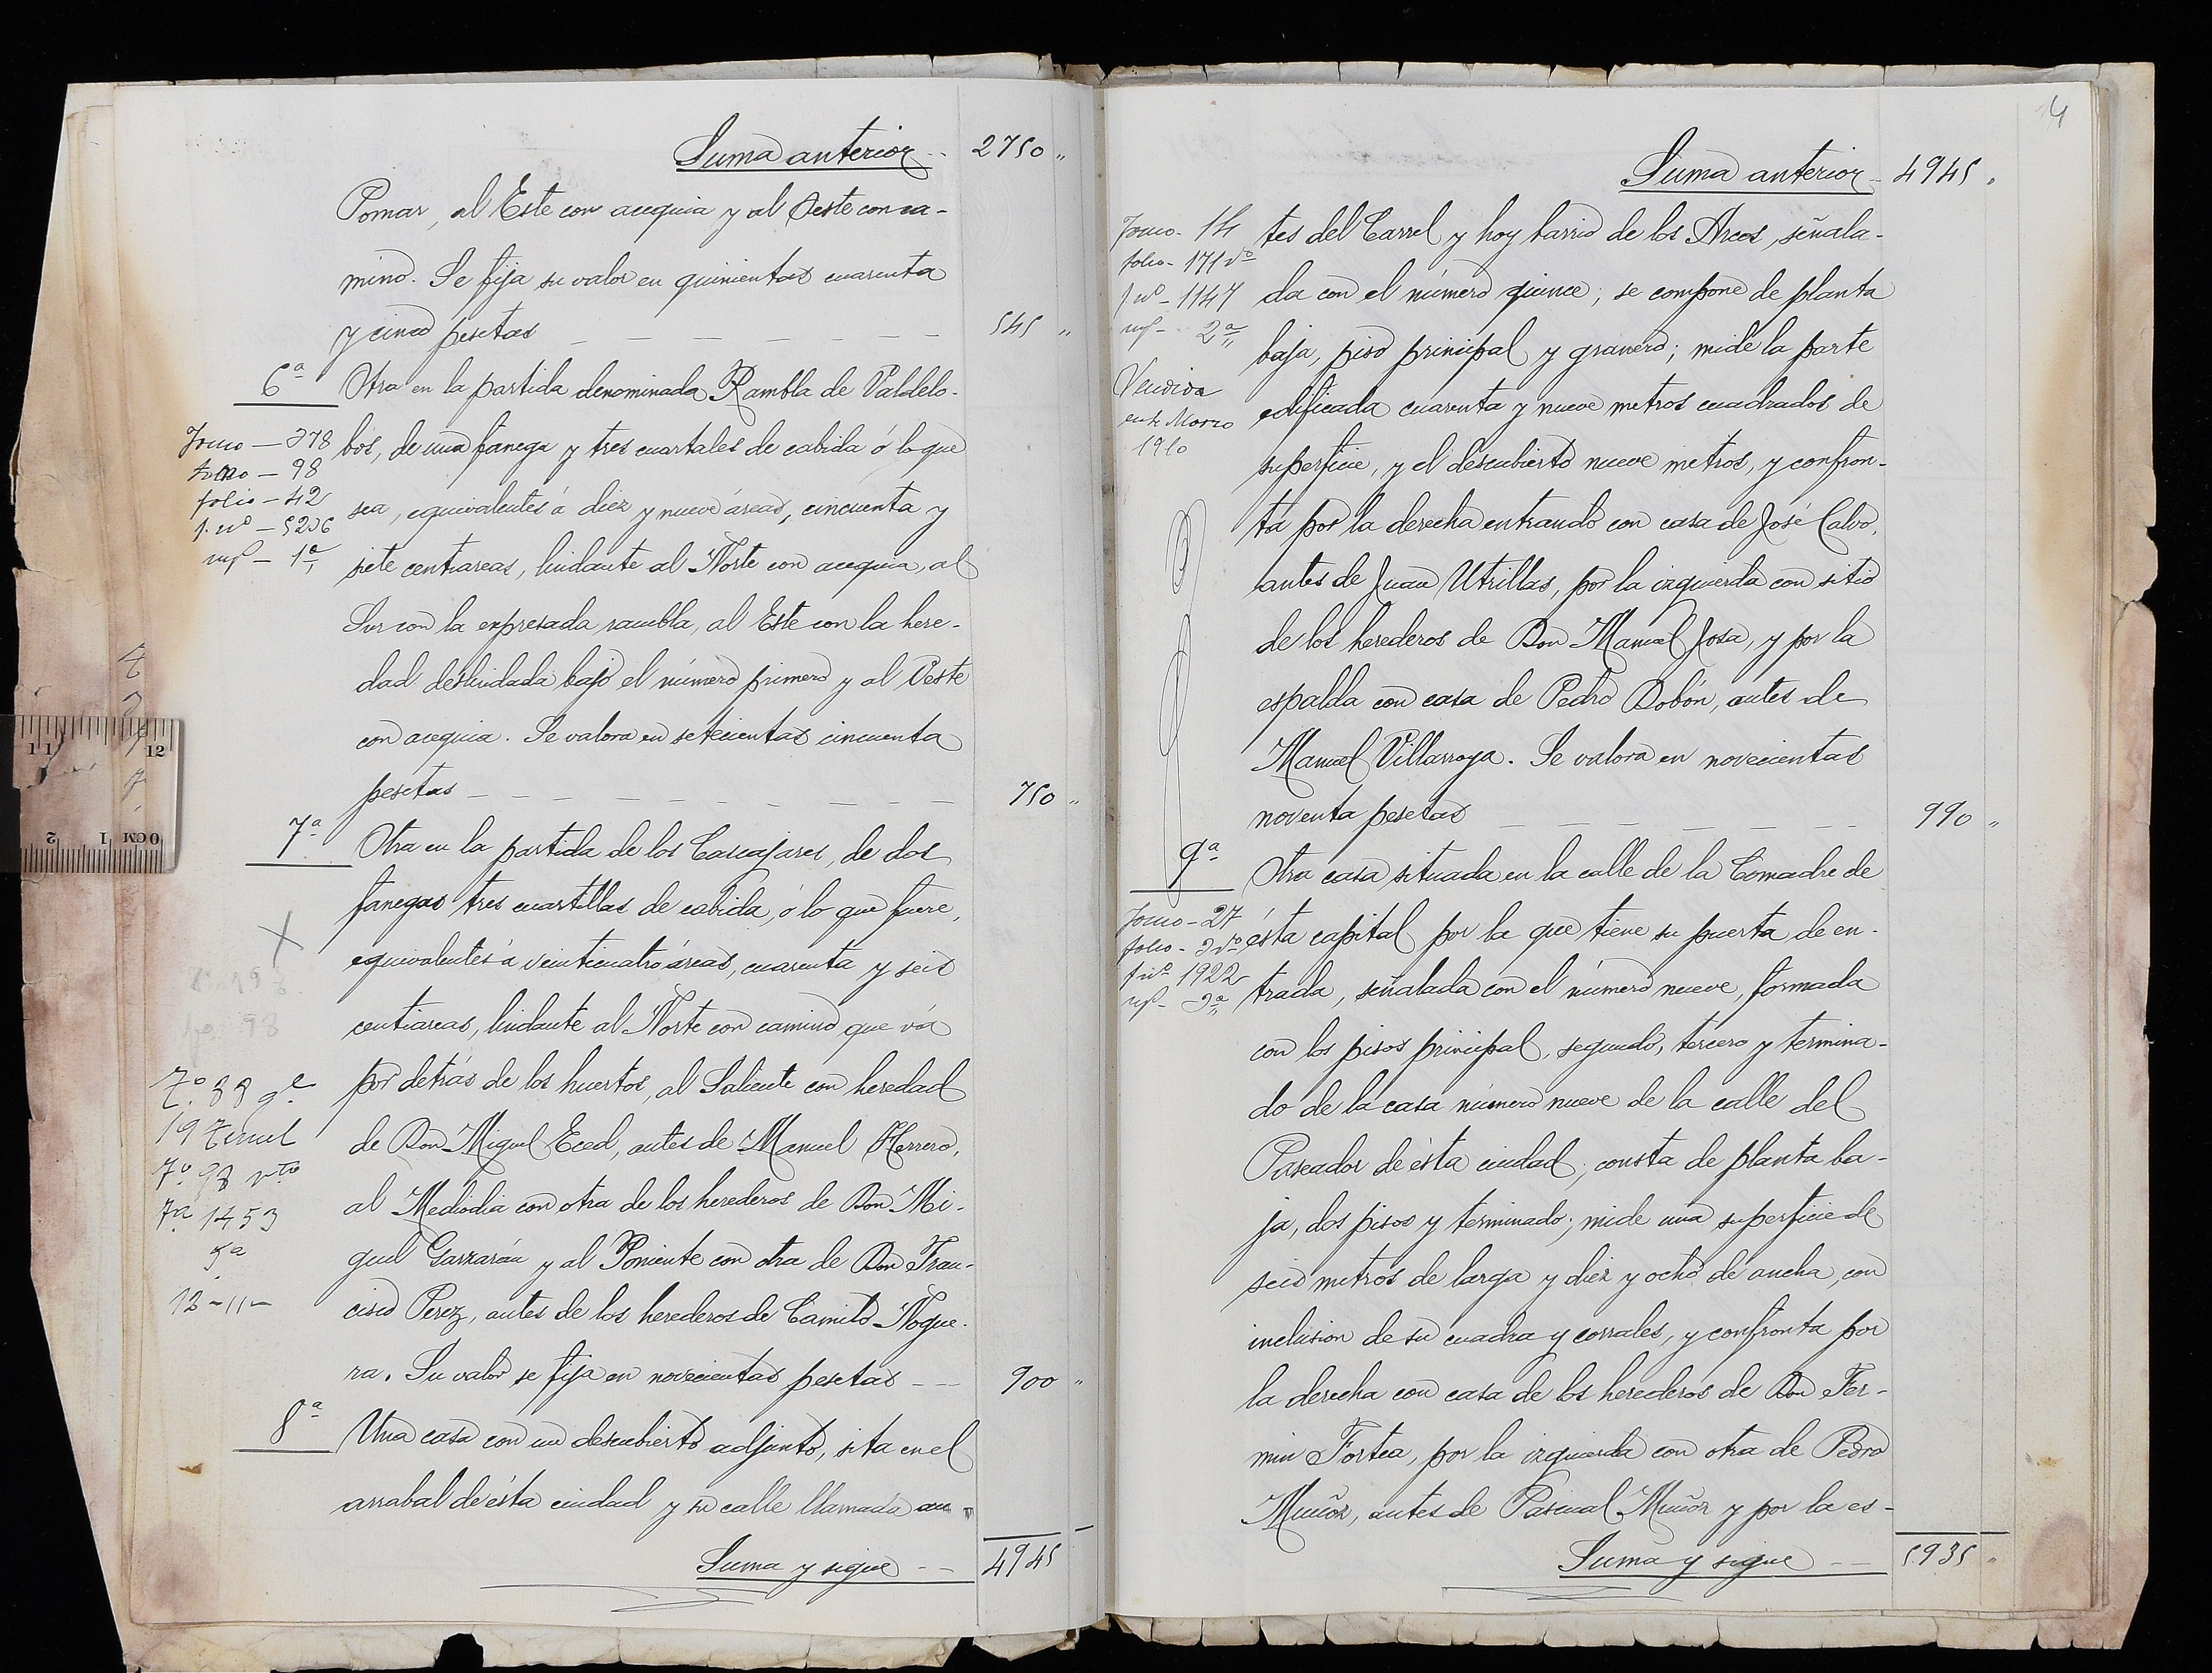 Suma anterior -- 2750 "
Pomar, al Este con acequia y al Oeste con ca-
mino. Se fija su valor en quinientas cuarenta
y cinco pesetas — — — — — — — 545 "
6ª Otra en la partida denominada Rambla de Valdelo-
Tomo — 378 bos, de una fanega y tres cuartales de cabida ó lo que
tomo — 98
folio — 42 sea, equivalentes á diez y nueve áreas, cincuenta y
f. nº — 5206
insf — 1ª siete centiareas, lindante al Norte con acequia, al
Sur con la expresada rambla, al Este con la here-
dad deslindada bajo el número primero y al Oeste
con acequia. Se valora en setecientas cincuenta
pesetas — — — — — — — — — 750 "
7ª Otra en la partida de los Cascajares, de dos
fanegas tres cuartillas de cabida, ó lo que fuere,
X equivalentes á veinticuatro áreas, cuarenta y seis
centiareas, lindante al Norte con camino que vá
por detrás de los huertos, al Saliente con heredad
19 Teruel de Don Miguel Eced, antes de Manuel Herrero,
al Mediodia con otra de los herederos de Don Mi-
1453
5ª guel Garzarán y al Poniente con otra de Don Fran-
12-11- cisco Perez, antes de los herederos de Camilo Nogue-
ra. Su valor se fija en novecientas pesetas — — 900 "
8ª Una casa con un descubierto adjunto, sita en el
arrabal de ésta ciudad y su calle llamada an-
Suma y sigue -- 4945
4
Suma anterior - 4945 "
Tomo - 14 tes del Carrel y hoy barrio de los Arcos, señala-
folio - 171 vº
fº - 1147 da con el número quince; se compone de planta
insf - 2ª baja, piso principal y granero; mide la parte
Vendida
en Marzo edificada cuarenta y nueve metros cuadrados de
1910
superficie, y el descubierto nueve metros, y confron-
ta por la derecha entrando con casa de José Calvo,
antes de Juan Utrillas, por la izquierda con sitio
de los herederos de Don Manuel Josa, y por la
espalda con casa de Pedro Dobón, antes de
Manuel Villarroya. Se valora en novecientas
noventa pesetas — — — — — — 990 "
9ª Otra casa situada en la calle de la Comadre de
Tomo - 27
folio - 3 vº ésta capital por la que tiene su puerta de en-
f nº 1922
insf - 3ª trada, señalada con el número nueve, formada
con los pisos principal, segundo, tercero y termina-
do de la casa número nueve de la calle del
Paseador de ésta ciudad; consta de planta ba-
ja, dos pisos y terminado; mide una superficie de
seis metros de larga y diez y ocho de ancha, con
inclusion de su cuadra y corrales, y confronta por
la derecha con casa de los herederos de Don Fer-
min Fortea, por la izquierda con otra de Pedro
Muñoz, antes de Pascual Muñoz y por la es-
Suma y sigue -- 5935 "
11 12
2 1 0CM